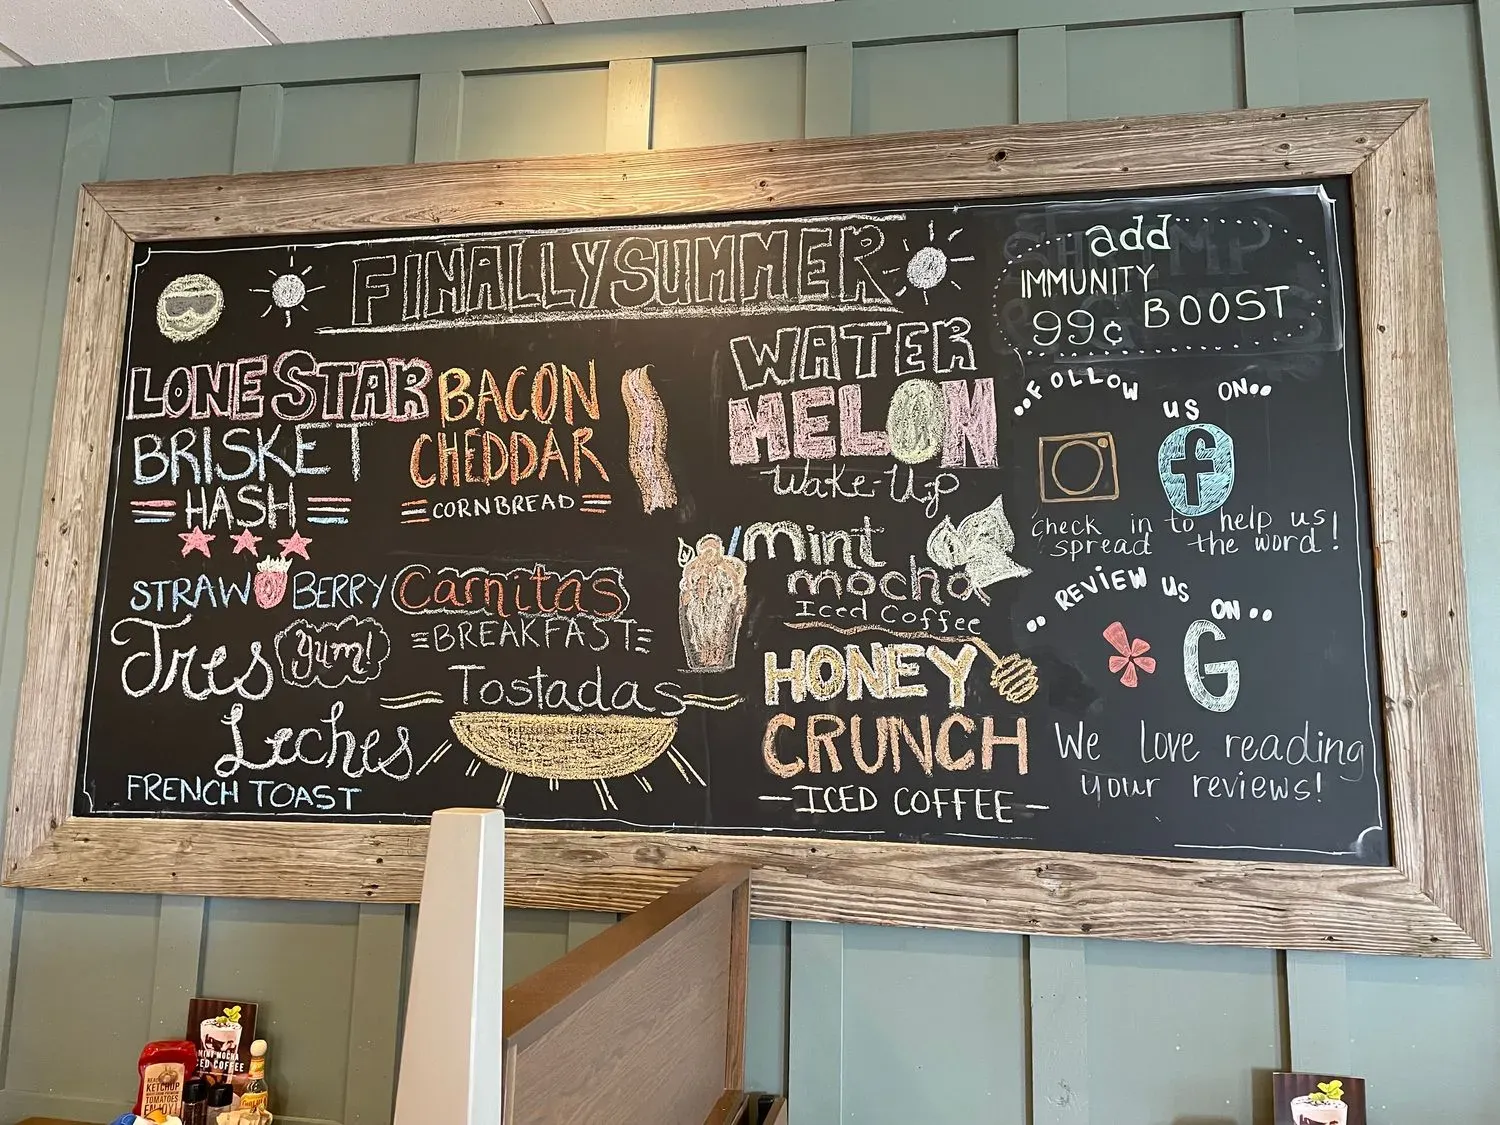 FINALLY SUMMER
LONE STAR
BRISKET
HASH
BACON
CHEDDAR
CORNBREAD
STRAWBERRY
Tres
yum!
Leches
FRENCH TOAST
Carnitas
BREAKFAST
Tostadas
WATER
MELON
Wake-Up
mint
mocha
Iced Coffee
HONEY
CRUNCH
-ICED COFFEE-
add
IMMUNITY
BOOST
99¢
..FOLLOW US ON..
f
check in to help us
spread the word!
..REVIEW US ON..
G
We love reading
your reviews!
MINT MOCHA
ICED COFFEE
KETCHUP
TOMATOES
ENJOY!